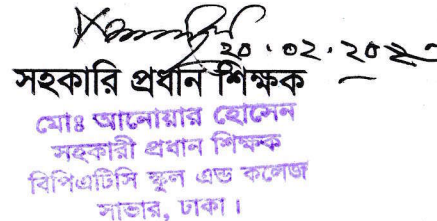 ২০.০২.২০২০
সহকারি প্রধান শিক্ষক
মোঃ আনোয়ার হোসেন
সহকারী প্রধান শিক্ষক
বিপিএটিসি স্কুল এন্ড কলেজ
সাভার, ঢাকা।